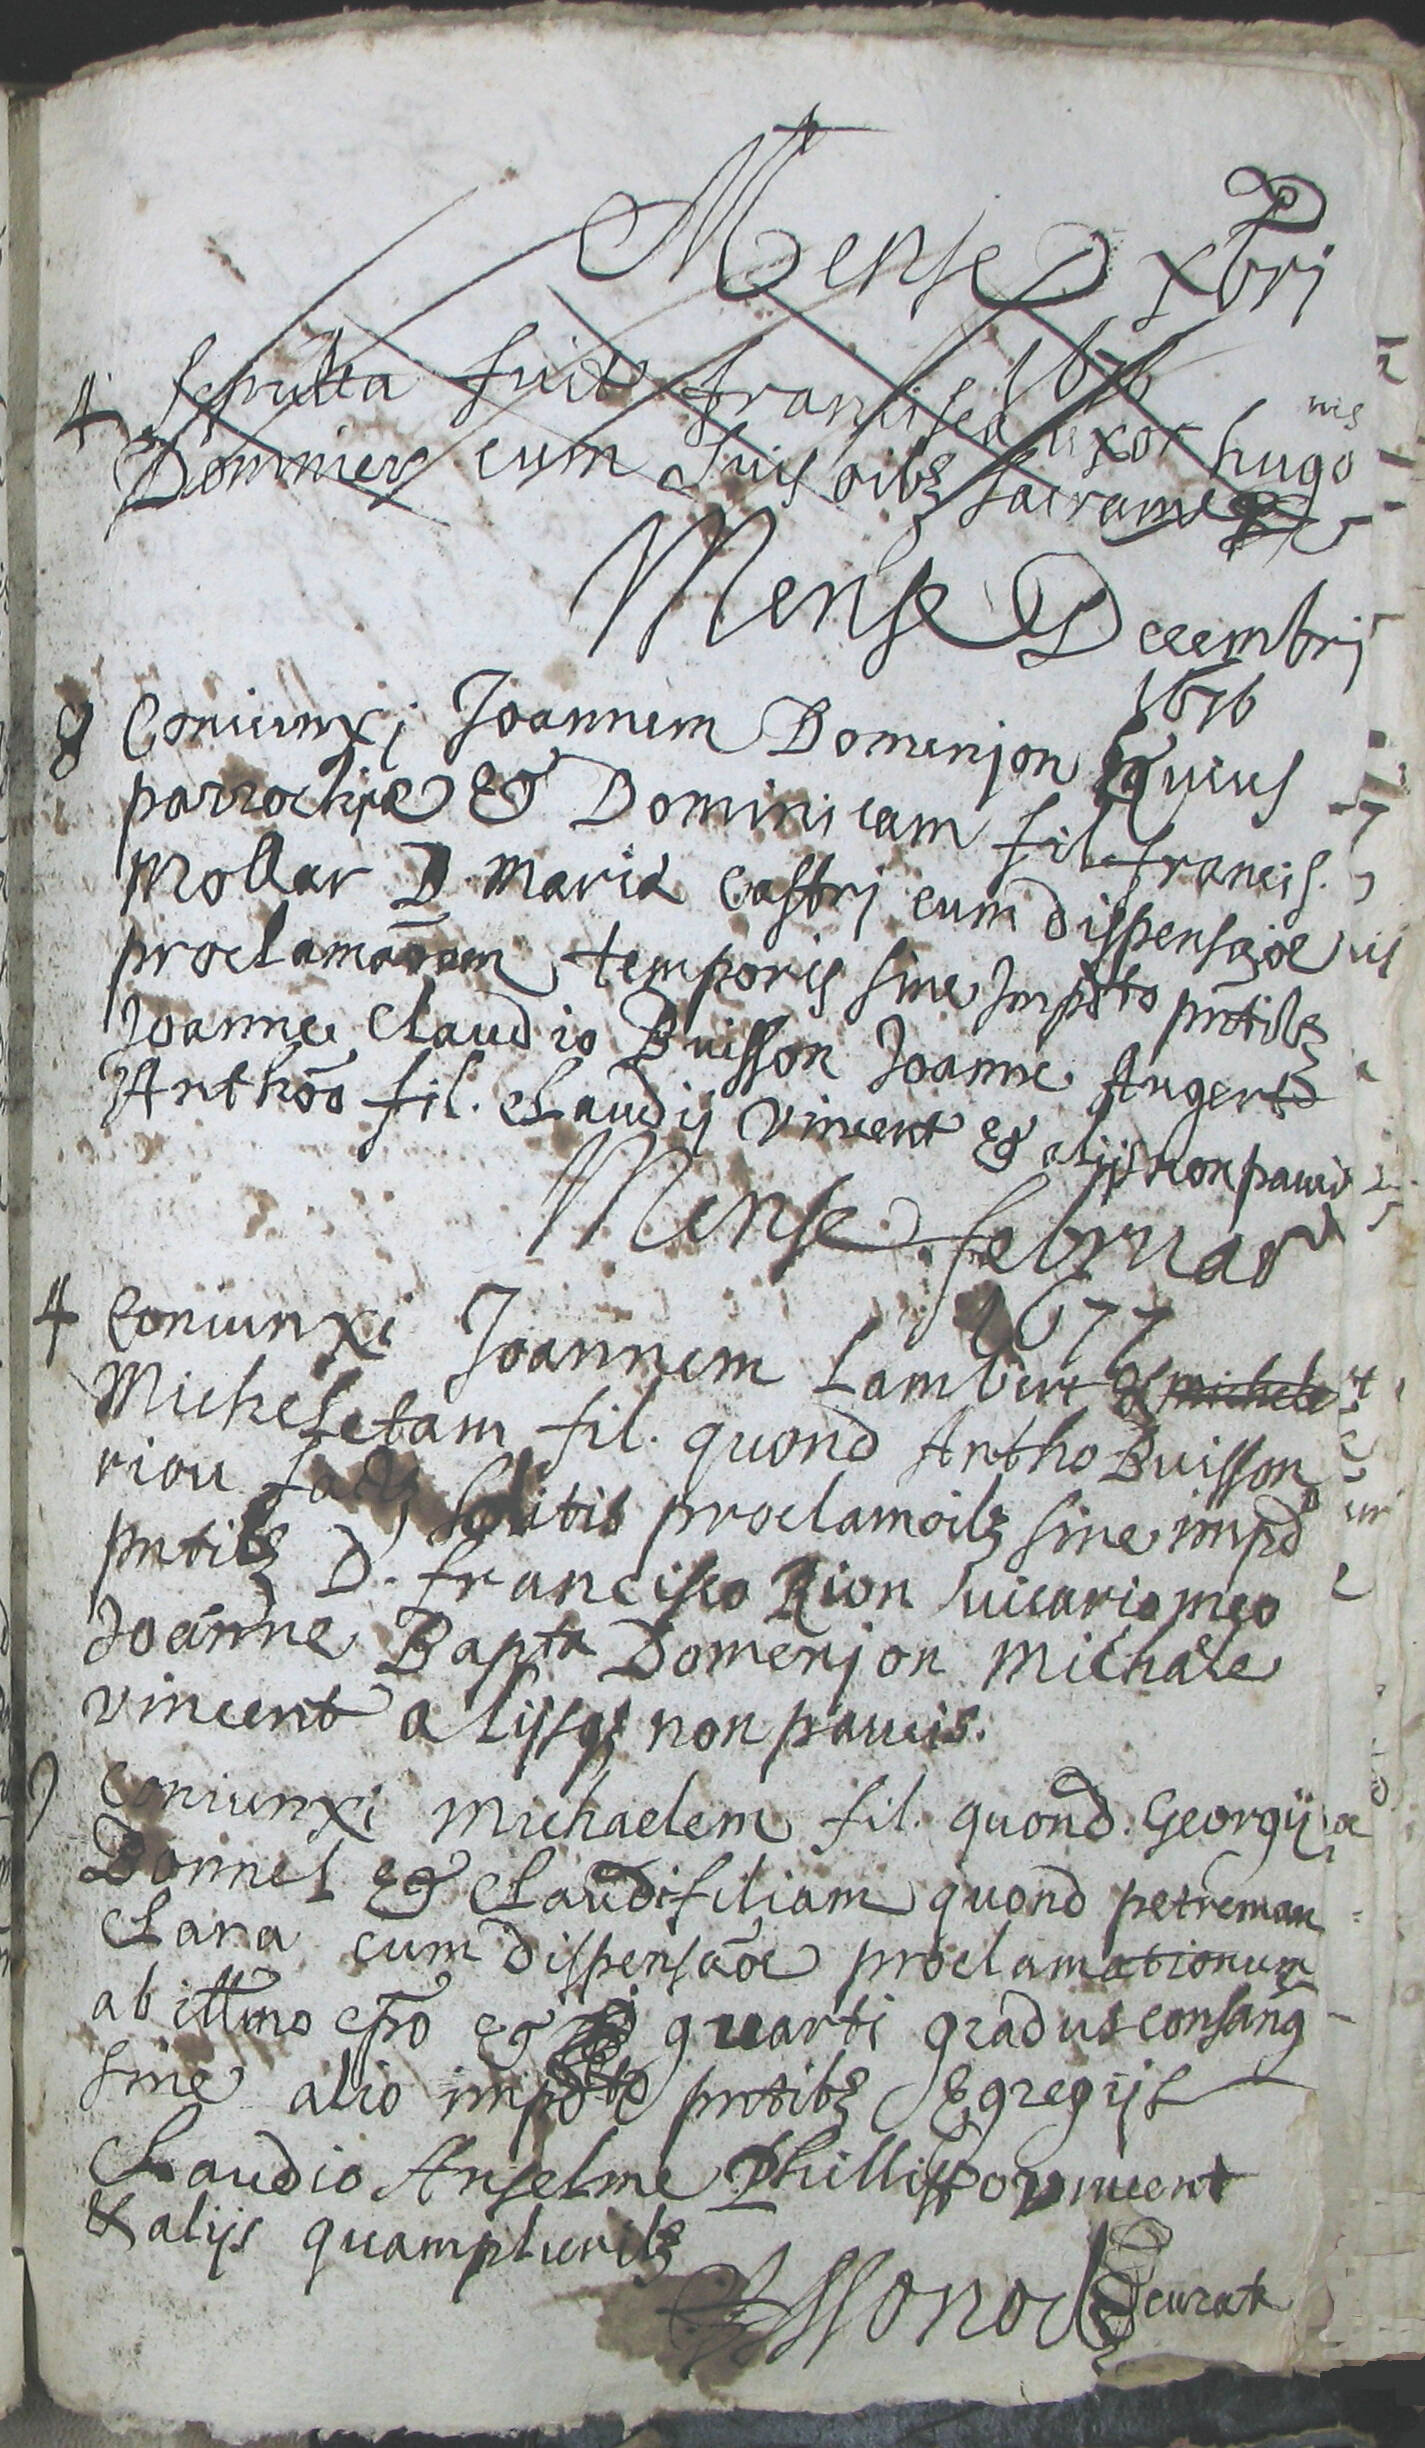 Mense Xbri
1676
4 Sepulta fuit francisca uxor hugonis
Dommier cum suis oibz sacrame
Mense Decembrj
1676
8 Coniunxj Joannem Domenjon huius
parrochiæ et Dominicam fil. francis.
Mollar D Maria Castrj cum dispensaōe
proclamaōum temporis sine Impdto pntibz
Joanne Claudio Buisson Joanne Augert
Anthōo fil. Claudij vincent et alijs non paucis
Mense februar
1677
4 Coniunxi Joannem Lambert et michele
Micheletam fil. quond Antho Buisson
riou factis solitis proclamoibz sine impd
pntibz D. francisco Rion vicario meo
Joanne Bapta Domenjon Michaele
vincent alijsqz non paucis.
7 Coniunxi Michaelem fil. quond. Georgij
Bonnel et Claudi filiam quond petreman
Clara cum dispensaōe proclamationum
ab illmo epo et quarti gradus consang
sine alio impdto pntibz Egregijs
Claudio Anselme Phillippo vincent
& alijs quampluribz
curat